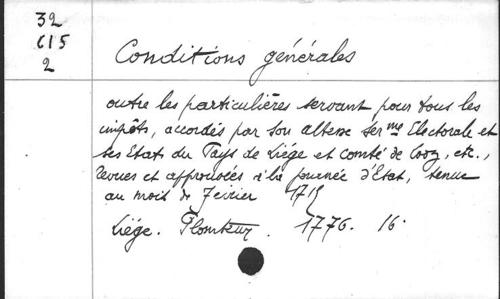 32
C15
2
Conditions générales
outre les particulières servant pour tous les
impôts, accordés par son altesse serme Electorale et
ses Etats du Pays de Liége et comté de Looz, etc.,
revues et approuvées à la journée d'Etat, tenue
au mois de Février 1715
Liége. Plomteux. 1776. 16.